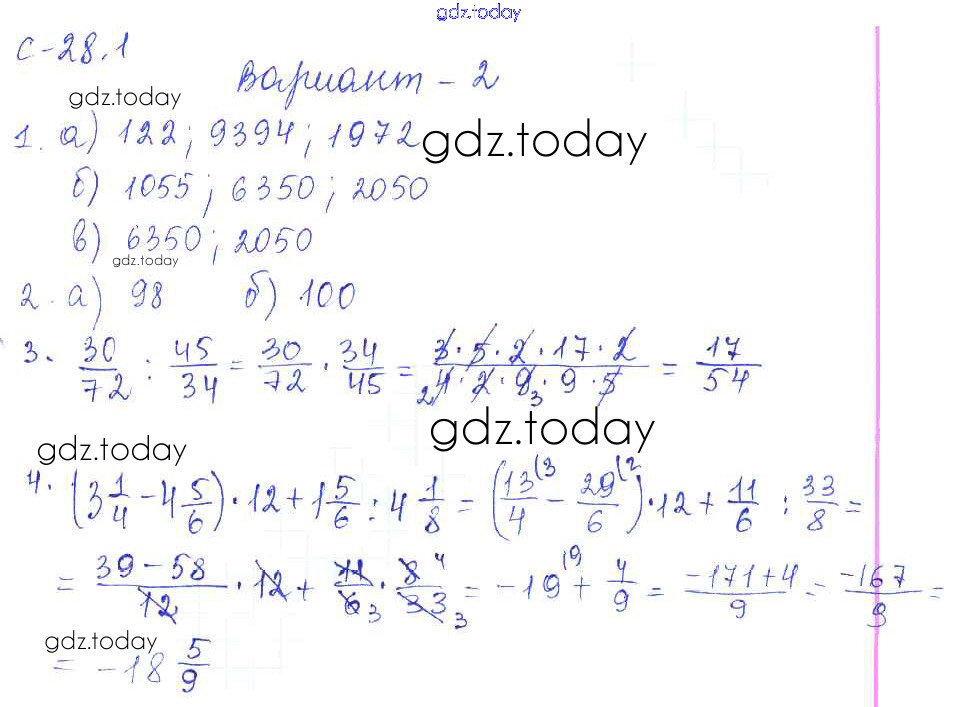 gdz.today
С-28.1
Вариант - 2
gdz.today
1. а) 122; 9394; 1972
gdz.today
б) 1055; 6350; 2050
в) 6350; 2050
gdz.today
2. а) 98 б) 100
3. 30/72 : 45/34 = 30/72 · 34/45 = 3·5·2·17·2 / 4·2·9·9·5 = 17/54
gdz.today
gdz.today
4. (3 1/4 - 4 5/6) · 12 + 1 5/6 : 4 1/8 = (13/4 - 29/6) · 12 + 11/6 : 33/8 =
= 39-58/12 · 12 + 11/6 · 8/33 = -19 + 4/9 = -171+4/9 = -167/9 =
gdz.today
= -18 5/9